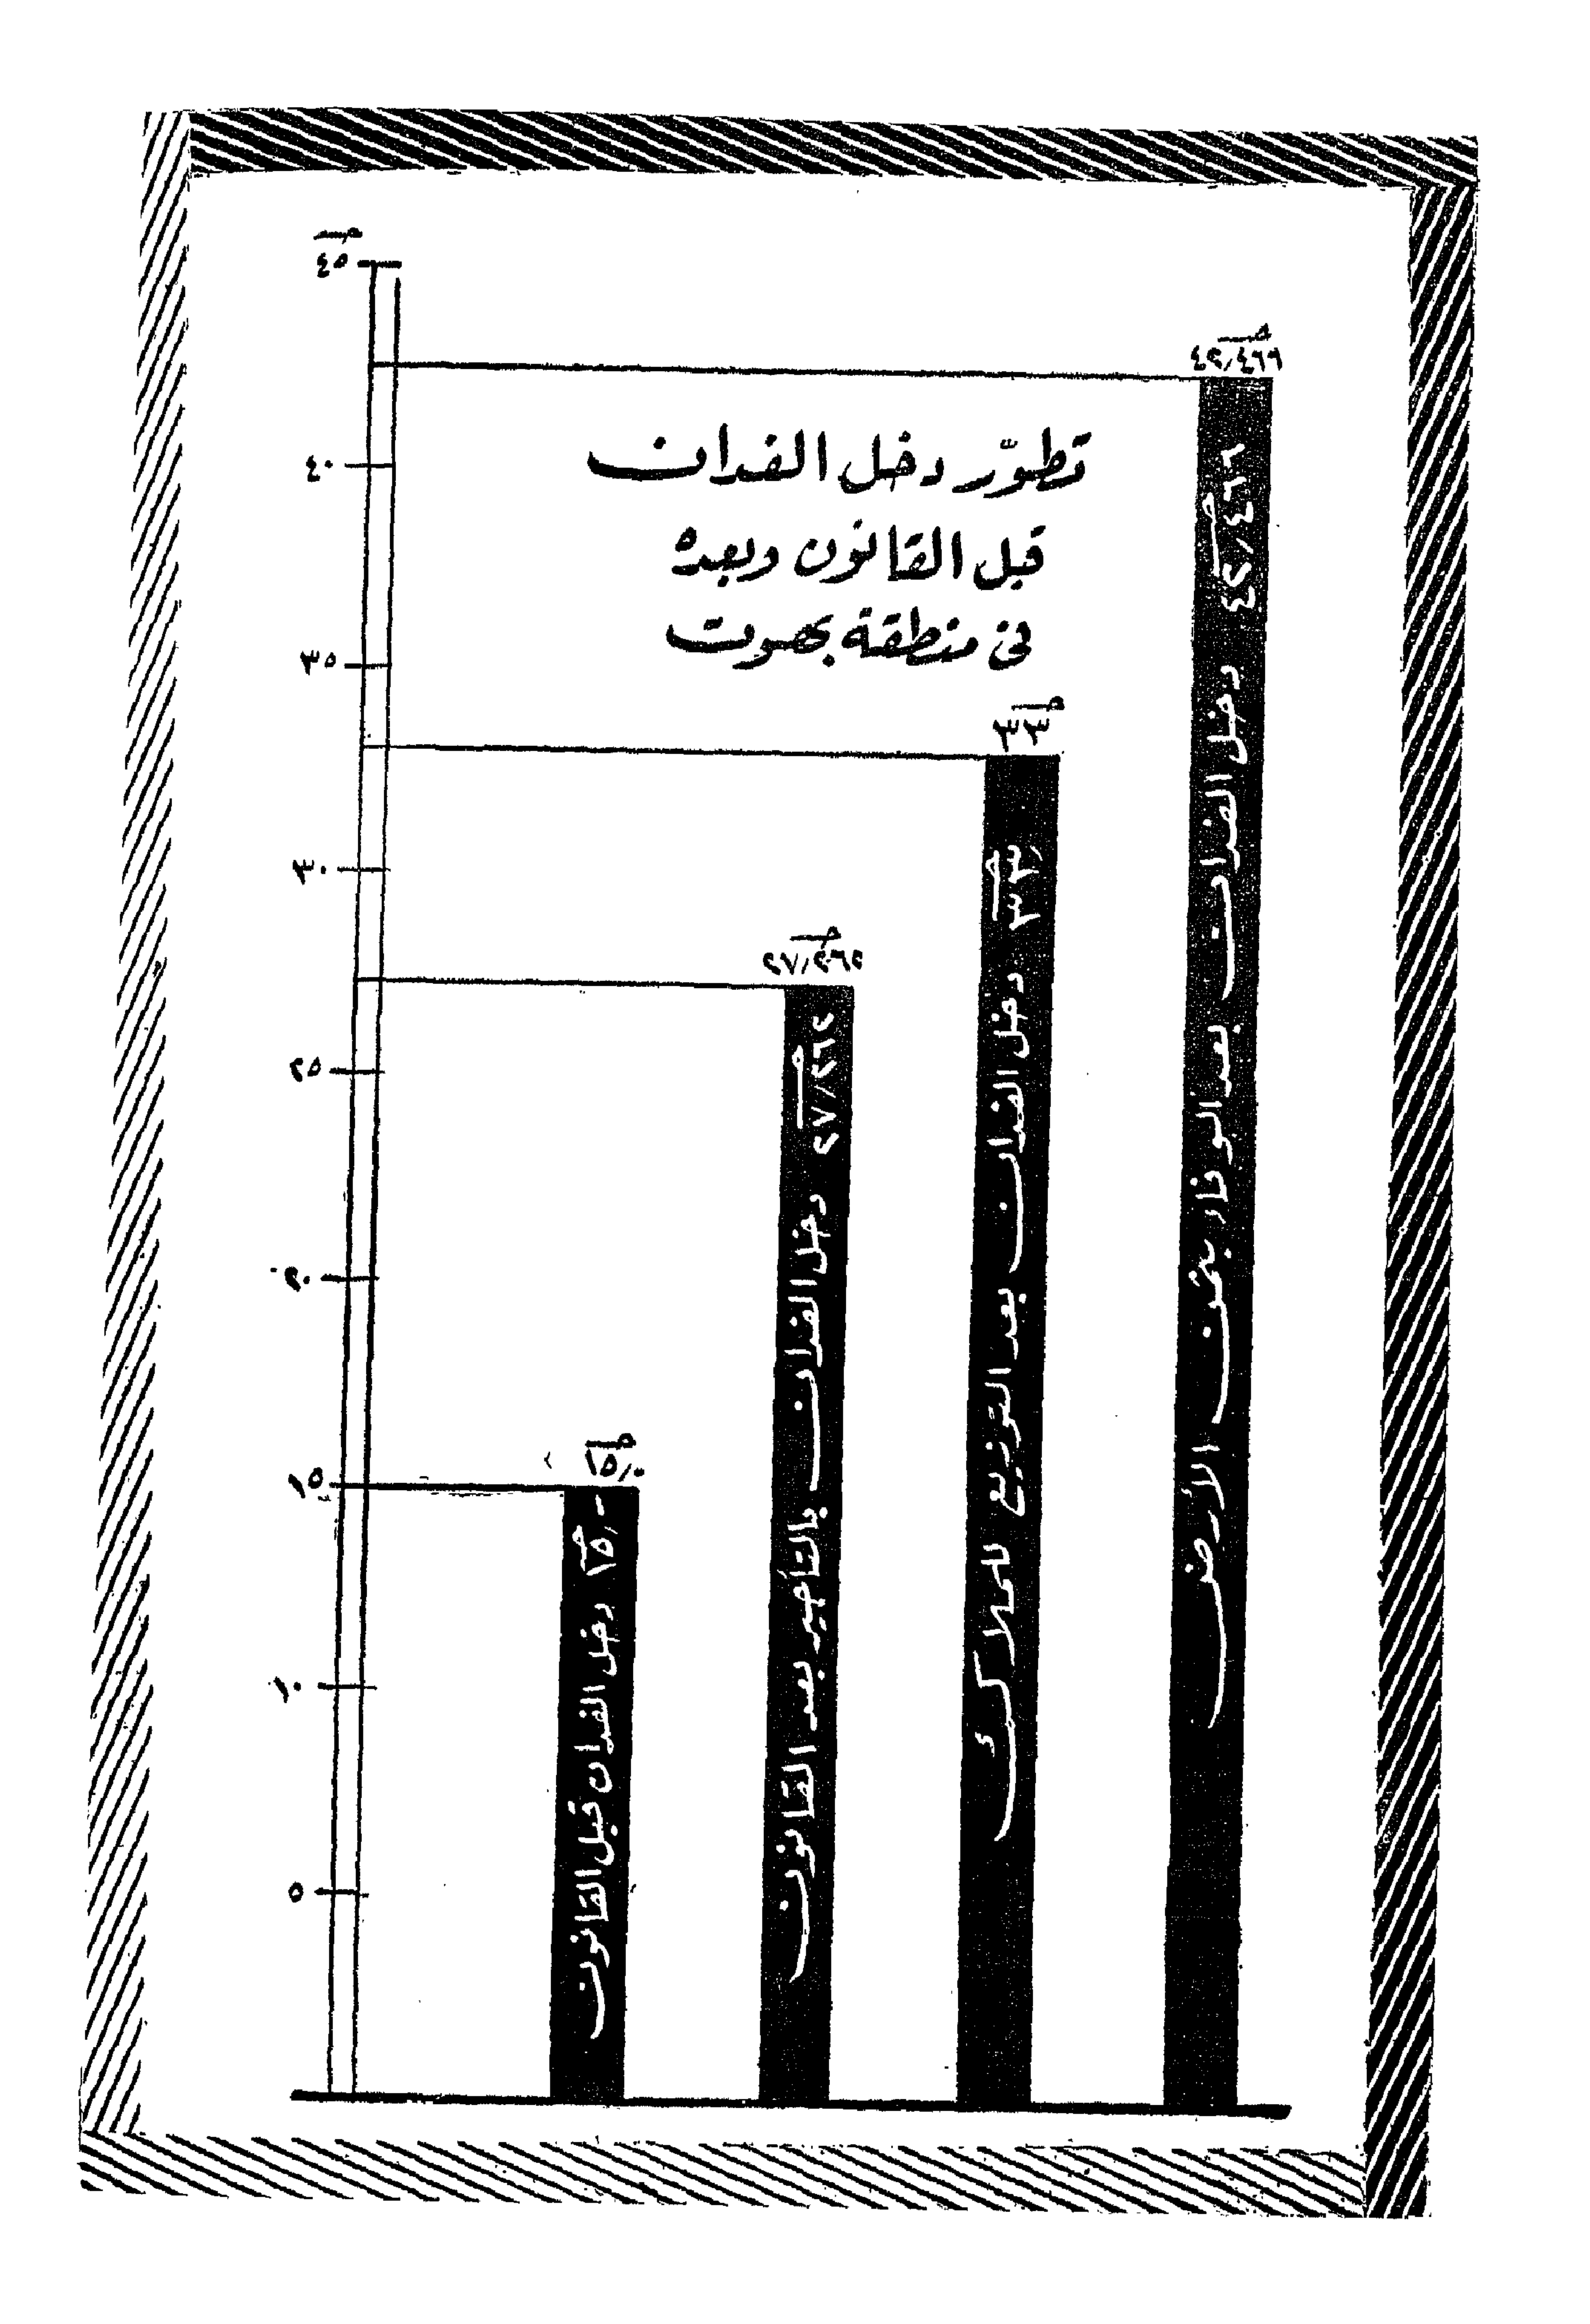 تطوّر دخل الفدان
قبل القانون وبعده
فى منطقة بهوت
جـ
٤٥
٤٠
٣٥
٣٠
٢٥
٢٠
١٥
١٠
٥
جـ
١٥٫٠
١٥٫- جـ دخل الفدان قبل القانون
جـ
٢٧٫٢٦٢
٢٧٫٢٦٢ جـ دخل الفدان بالتأجير بعد القانون
جـ
٣٣
٣٣٫ جـ دخل الفدان بعد التوزيع للملاك
جـ
٤٢٫٤٦٦
٤٢٫٤٦٦ جـ دخل الفدان بعد الوفاء بثمن الأرض